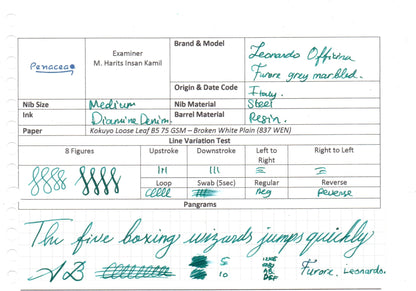 Penacea
Examiner
M. Harits Insan Kamil
Brand & Model
Leonardo Officina
Furore grey marbled.
Origin & Date Code
Italy.
Nib Size
Medium
Nib Material
Steel
Ink
Diamine Denim.
Barrel Material
Resin.
Paper
Kokuyo Loose Leaf B5 75 GSM – Broken White Plain (837 WEN)
Line Variation Test
8 Figures
Upstroke
Downstroke
Left to Right
Right to Left
Loop
Swab (5sec)
Regular
Reverse
Reg
Reverse
Pangrams
The five boxing wizards jumps quickly
AB
5
10
Furore. Leonardo.